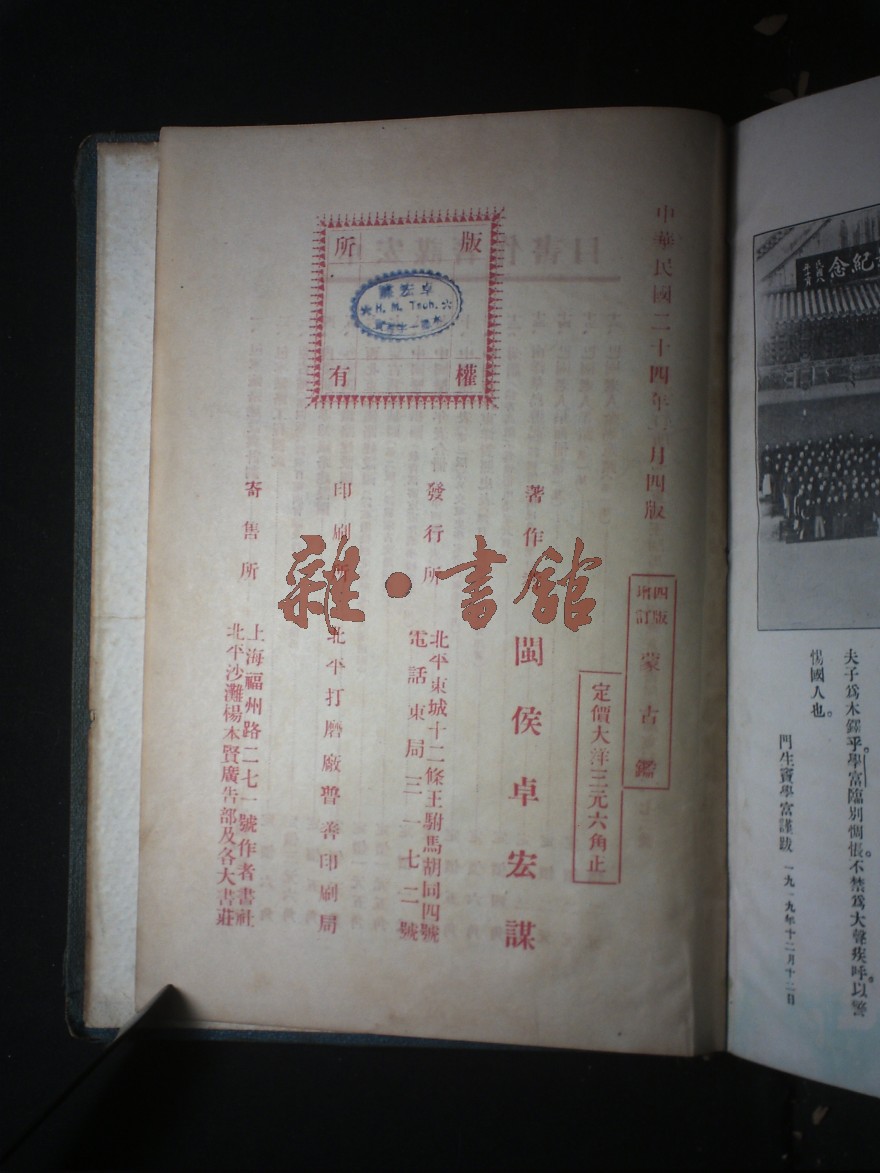 紀念
夫子爲木鐸乎學富臨別惆悵不禁爲大聲疾呼以警
惕國人也。
門生竇學富謹跋 一九一九年十二月十二日
中華民國二十四年 月四版
四版
增訂
蒙古鑑
定價大洋三元六角止
著作 閩侯卓宏謀
發行所 北平東城十二條王駙馬胡同四號
電話東局三一七二號
印刷所 北平打磨廠普善印刷局
寄售所 上海福州路二七一號作者書社
北平沙灘楊本賢廣告部及各大書莊
版權所有
卓宏謀
H. M. Tsoh.
雜·書館